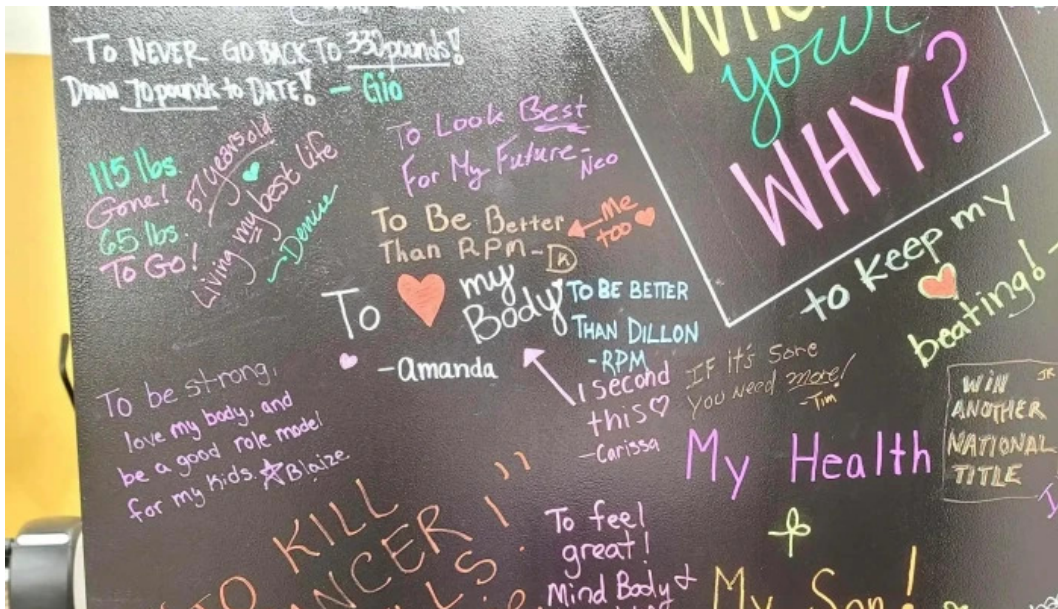 To NEVER GO BACK TO 330 pounds!
Down 70 pounds to DATE! - Gio
your
WHY?
115 lbs.
Gone!
65 lbs.
To Go!
57 years old
Living my best life
- Denise
To Look Best
For My Future -
Neo
To Be Better
Than RPM -
Me
too
To my
Body
- Amanda
TO BE BETTER
THAN DILLON
- RPM
I second
this
- Carissa
to keep my
beating!
IF it's Sore
You Need more!
- Tim
WIN
ANOTHER
NATIONAL
TITLE
JR
My Health
To be strong,
love my body, and
be a good role model
for my kids. Blaize
TO KILL
To feel
great!
Mind Body &
My Son!